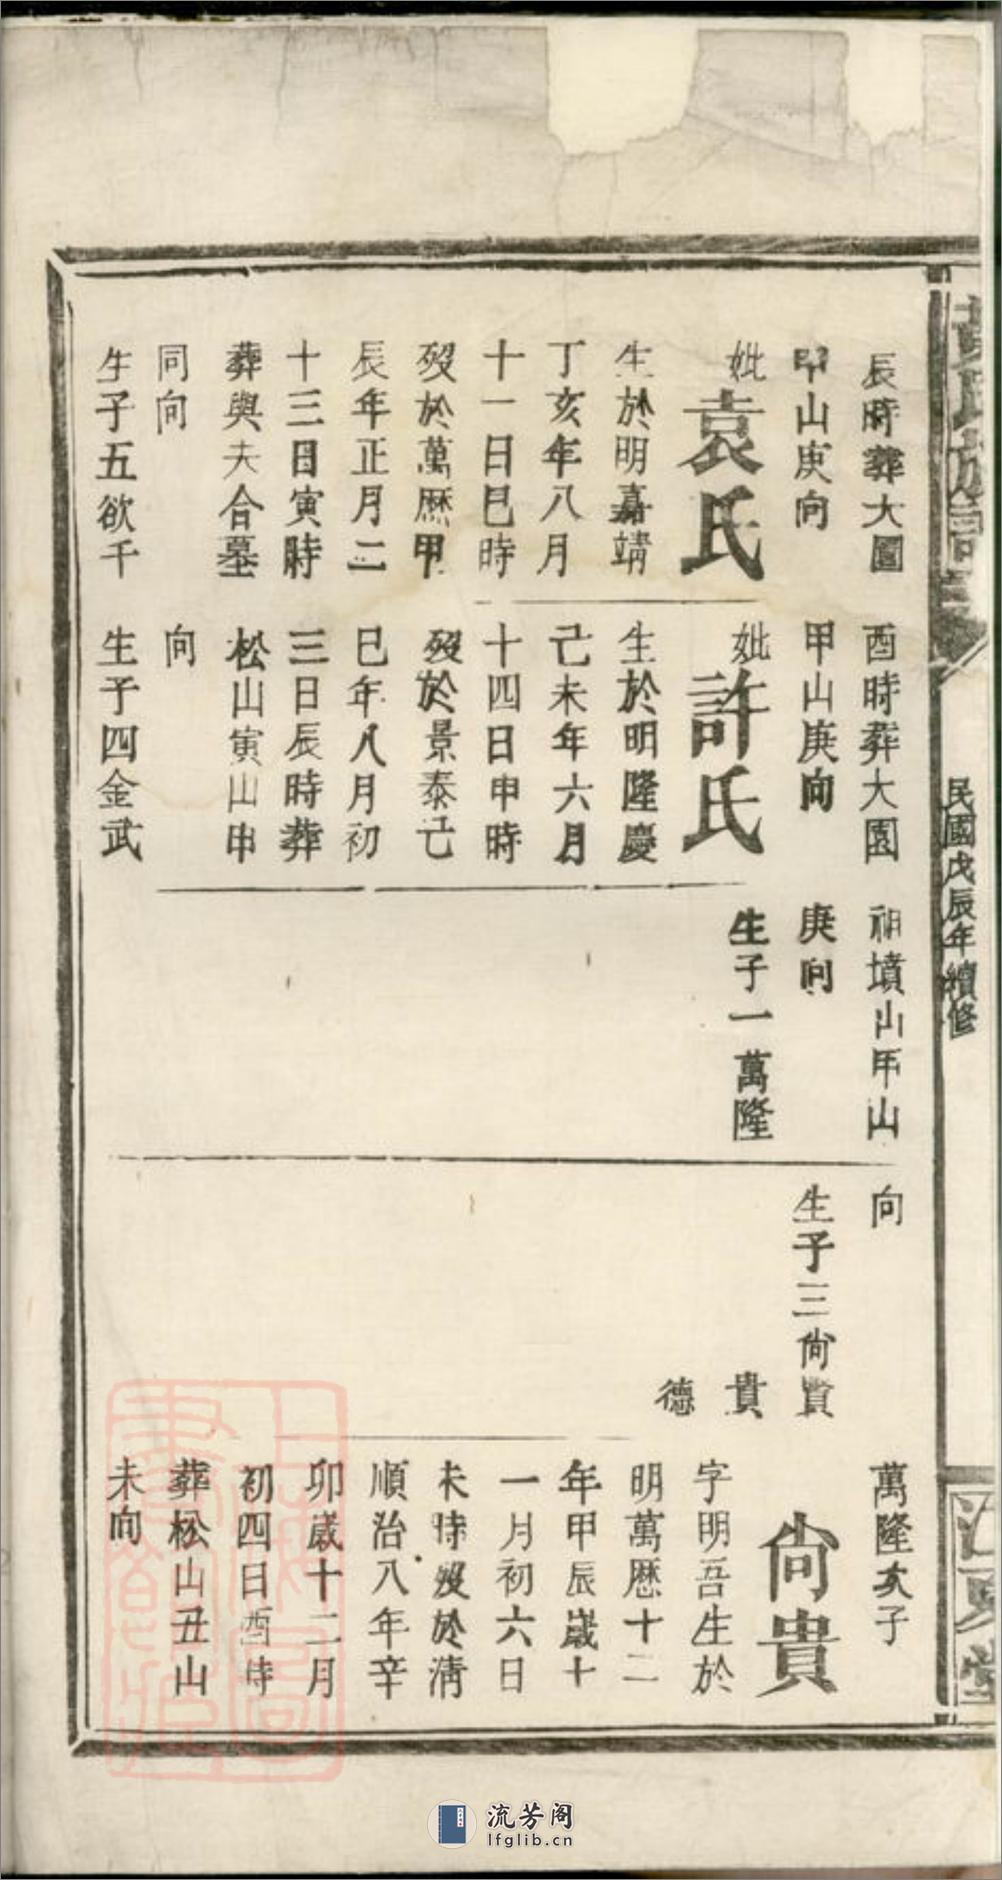 民國戊辰年續修
辰時葬大園
甲山庚向
妣袁氏
生於明嘉靖
丁亥年八月
十一日巳時
歿於萬厯甲
辰年正月二
十三日寅時
葬與夫合墓
同向
生子五欲千
酉時葬大園
甲山庚向
妣許氏
生於明隆慶
己未年六月
十四日申時
歿於景泰己
巳年八月初
三日辰時葬
松山寅山申
向
生子四金武
祖墳山甲山
庚向
生子一萬隆
向
生子三尙賢
貴
德
萬隆次子
尙貴
字明吾生於
明萬厯十二
年甲辰歲十
一月初六日
未時歿於清
順治八年辛
卯歲十二月
初四日酉時
葬松山丑山
未向
流芳阁
lfglib.cn